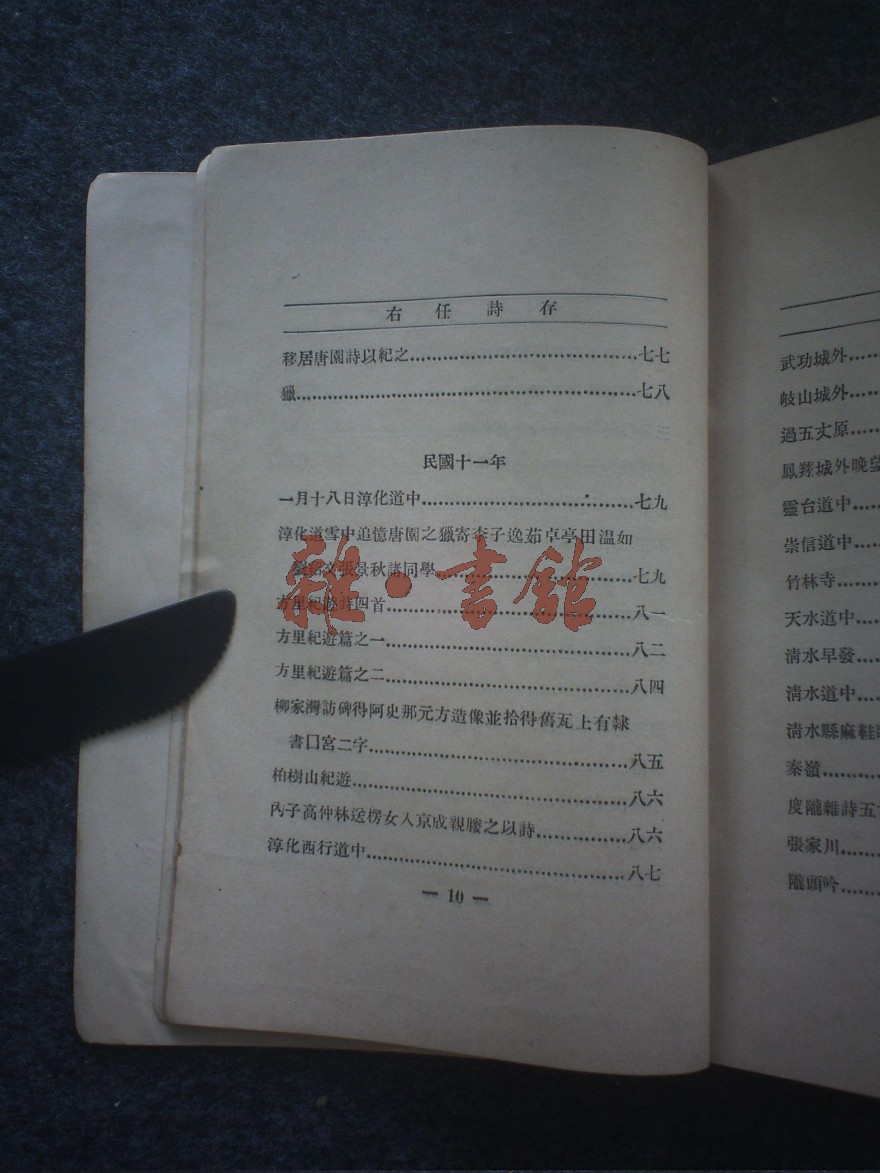 右任詩存
移居唐園詩以紀之……七七
獵……七八
民國十一年
一月十八日淳化道中……七九
淳化道雪中追憶唐園之獵寄李子逸茹卓亭田温如
劉紹文張景秋諸同學……七九
方里紀遊詩四首……八一
方里紀遊篇之一……八二
方里紀遊篇之二……八四
柳家灣訪碑得阿史那元方造像並拾得舊瓦上有隸
書囗宮二字……八五
柏樹山紀遊……八六
內子高仲林送楞女入京成親媵之以詩……八六
淳化西行道中……八七
— 10 —
雜·書館
武功城外……
岐山城外……
過五丈原……
鳳翔城外晚望
靈台道中……
崇信道中……
竹林寺……
天水道中……
清水早發……
清水道中……
清水縣麻鞋
秦嶺……
度隴雜詩五
張家川……
隴頭吟……